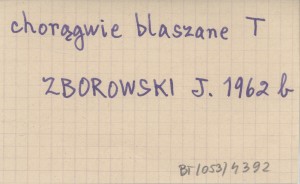 chorągwie blaszane T
ZBOROWSKI J. 1962 b
BT/053/4392